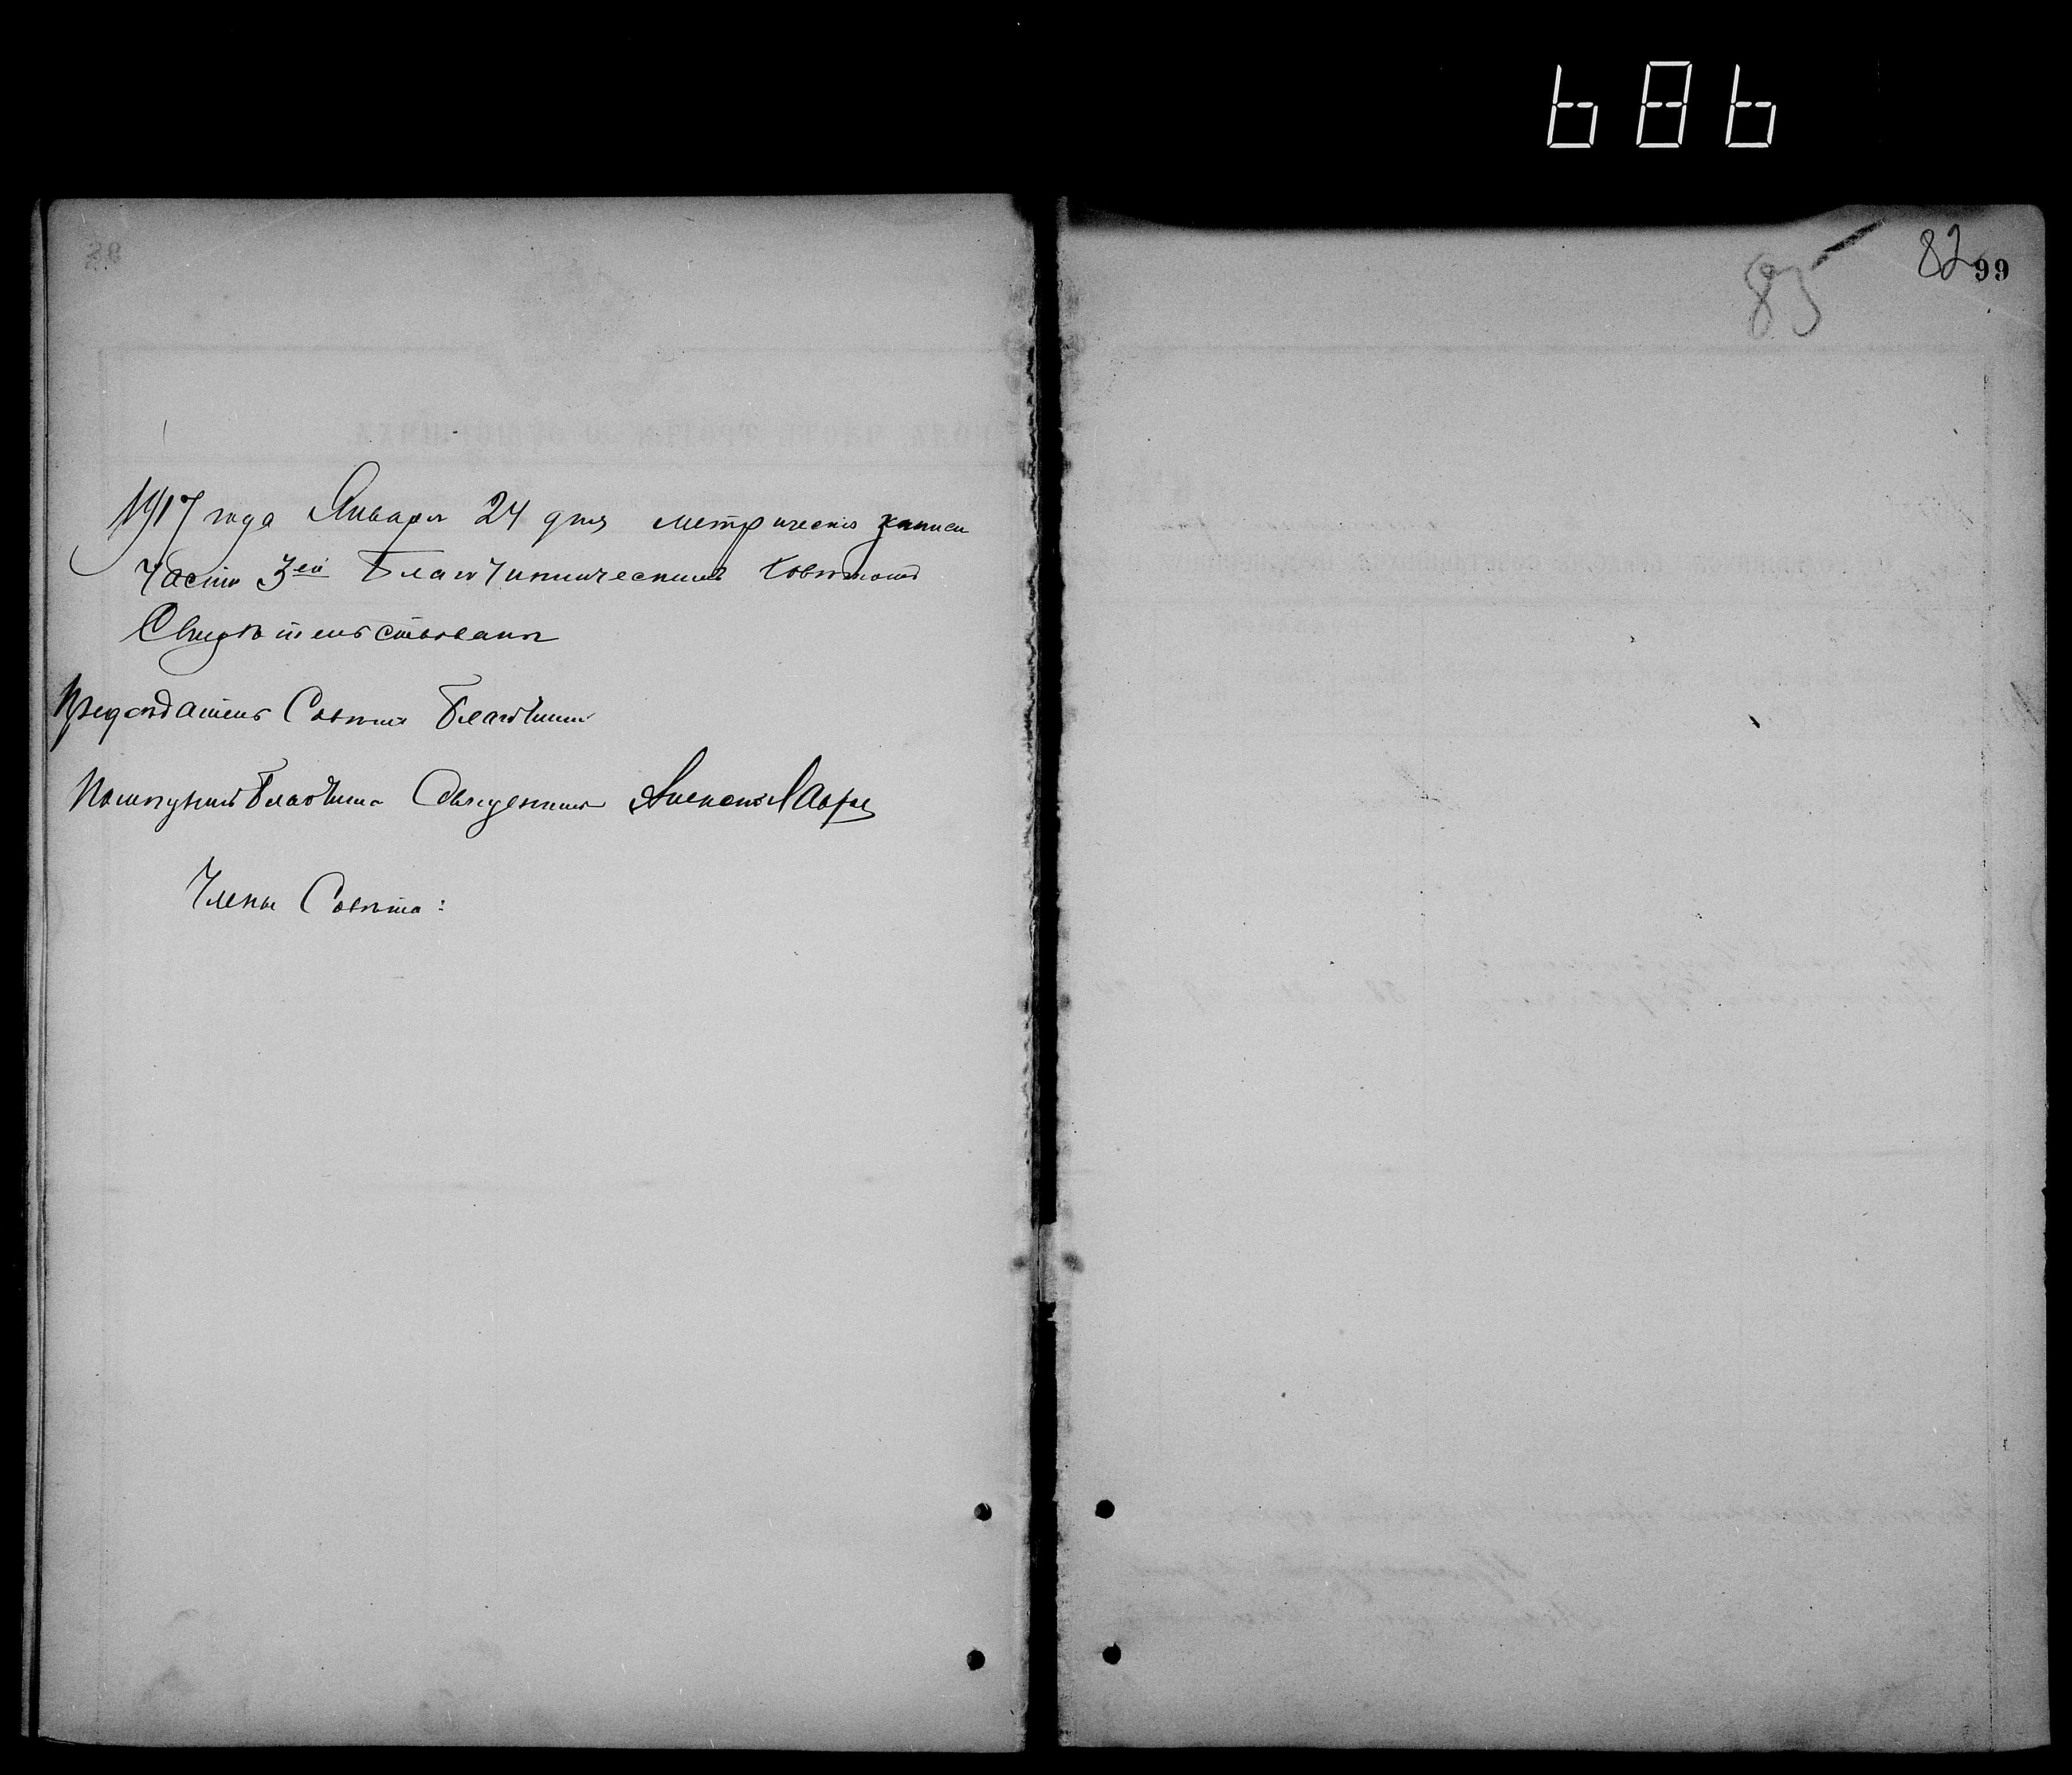 686
82 99
85
1917 года Января 24 дня метрическія записи
части 3ей Благочинническимъ Совѣтомъ
Свидѣтельствованы
Предсѣдатель Совѣта Благочинн
Благочинн Священникъ Алексѣй Лавр
Члены Совѣта: